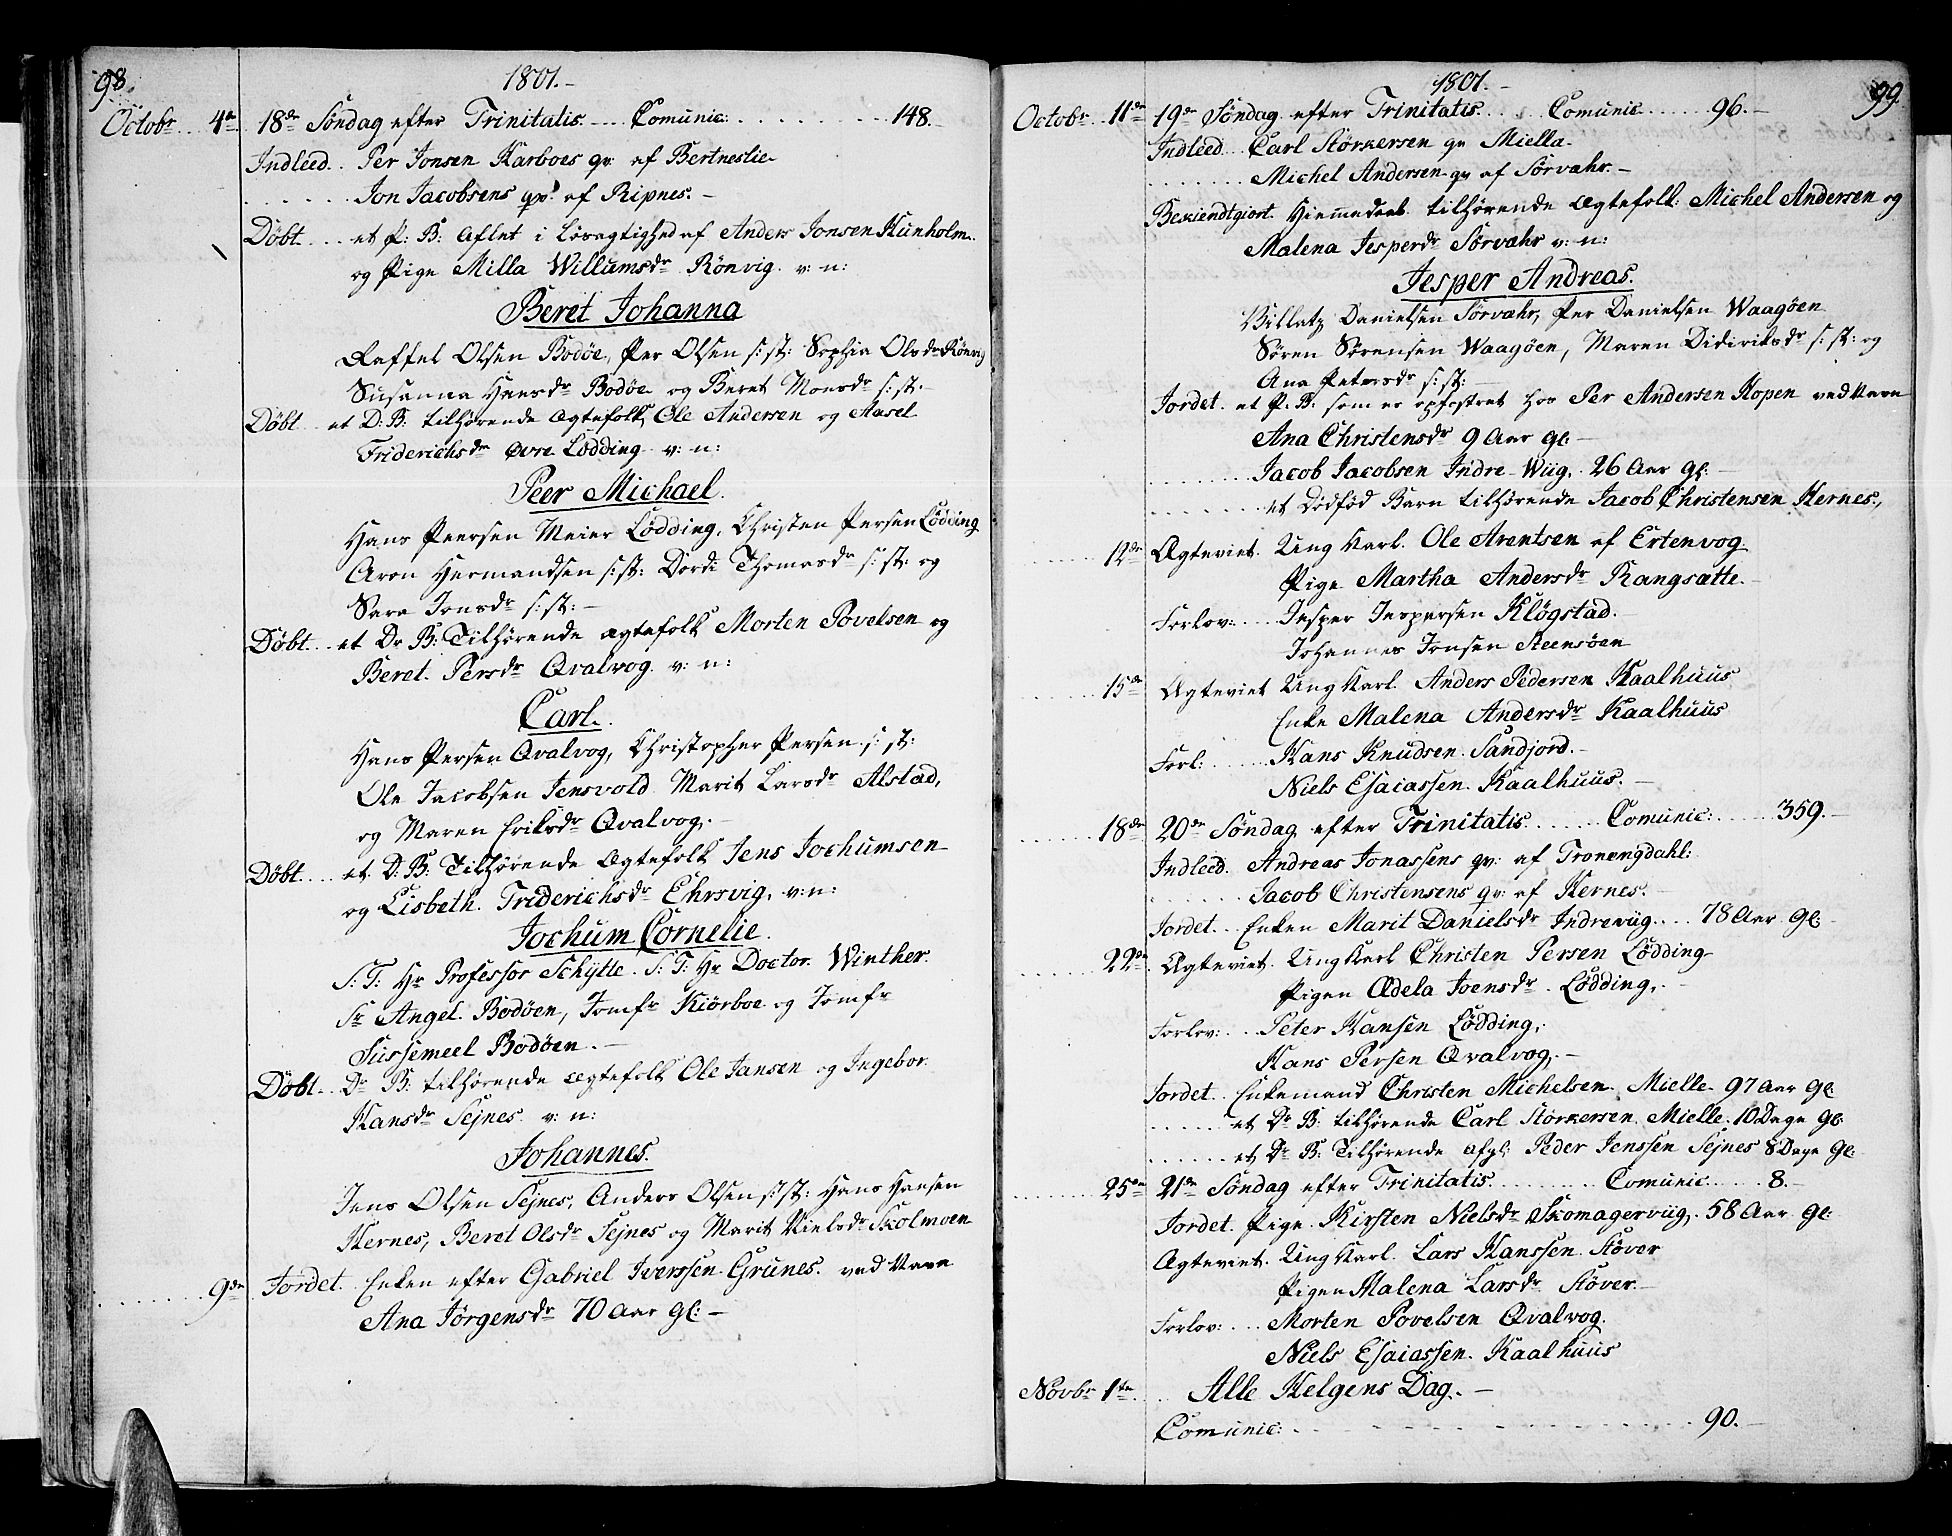 98.
1801.-
Octobr 4de 18de Søndag efter Trinitatis. Comunic: 148.-
Indleed. Per Jonsen Karboes qv: af Bertneslie
Jon Jacobsens qv: af Ripnes.-
Døbt et P: B: Aflet i Løsagtighed af Anders Jonsen Kunholm.
og Pige Milla Willumsdr Rønvig. v: n:
Beret Johanna
Raffel Olsen Bodøe, Per Olsen s: st: Sophia Olsdr Rønvig
Susanna Hansdr Bodøe og Beret Monsdr s: st.-
Døbt et D: B: tilhørende Ægtefolk Ole Andersen og Aasel
Friderichsdr øvre Lødding v: n:
Peer Michael.
Hans Peersen Meier Lødding, Christen Persen Lødding
Aron Hermandsen s: st: Dordi Thomasdr s: st: og
Sara Jonsdr s: st:-
Døbt et Dr B: Tilhørende ægtefolk Morten Povelsen og
Beret Persdr Qvalvog v: n:
Carl.
Hans Persen Qvalvog, Christopher Persen s: st:
Ole Jacobsen Jensvold Marit Larsdr Alstad,
og Maren Eriksdr Qvalvog.-
Døbt et D: B: Tilhørende Ægtefolk Jens Jochumsen
og Lisbeth Friderichsdr Ehrsvig. v: n:
Jochum Cornelie.
S: T: Hr Professor Schytte. S: T: Hr Doctor Winther.
Sr Angel Bodøen, Jomfr Kiørboe og Jomfr
Sussemeel Bodøen.-
Døbt Dr B: tilhørende ægtefolk Ole Jansen og Ingebor.
Hansdr Sejnes v: n:
Johannes.
Jens Olsen Sejnes, Anders Olsen s: st: Hans Hansen
Hernes, Beret Olsdr Sejnes og Marit Nielsdr Skolmoen
9de Jordet. Enken efter Gabriel Iverssen Grunes. ved Navn
Ana Jørgensdr 70 Aar gl:-
1801.-
99.
Octobr 11de 19de Søndag efter Trinitatis. Comunic 96.-
Indleed Carl Størkersen qv Miella.
Michel Andersen qv af Sørvæhr.-
Bekiendtgiort Hiemmedøbt tilhørende Ægtefolk: Michel Andersen og
Malena Jesperdr Sørvæhr v: n:
Jesper Andreas.
Danielsen Sørvæhr, Per Danielsen Waagøen
Søren Sørensen Waagøen, Maren Didiriksdr s: st: og
Ana Petersdr s: st:
Jordet. et P. B: som er opfostret hos Per Andersen Hopen ved Navn
Ana Christensdr 9 Aar gl:-
Jacob Jacobsen Indre Wiig. 26 Aar gl:-
et Dødfød Barn tilhørende Jacob Christensen Hernes.
12de Ægteviet. Ung Karl. Ole Arentsen af Ertenvog
Pige Martha Andersdr Rangsætte.-
Forlov: Jesper Jespersen Kløgstad.-
Johannes Jonsen Steensøen
15de Ægteviet Ung Karl Anders Pedersen Kaalhuus
Enke Malena Andersdr Kaalhuus
Forl: Hans Knudsen Sandjord.-
Niels Esaiassen Kaalhuus.-
18de 20de Søndag efter Trinitatis Comunic: 359.-
Indleed. Andreas Jonassens qv: af Tronengdahl:
Jacob Christensens qv: af Hernes.-
Jordet. Enken Marit Danielsdr Indrewiig. 78 Aar gl:
22de Ægteviet. Ung Karl Christen Persen Lødding
Pigen Ædela Joensdr Lødding.-
Forlov: Peter Hansen Lødding.
Hans Persen Qvalvog.-
Jordet. Enkemand Christen Michelsen Mielle 97 Aar gl:
et Dr B: tilhørende Carl Størkersen Mielle. 10 Dage gl:
et Dr B: Tilhørende afgl: Peder Jenssen Sejnes 8 Dage gl:
25de 21de Søndag efter Trinitatis Comunic 8.-
Jordet. Pige. Kirsten Nielsdr Skomagerviig. 58 Aar gl:
Ægteviet. Ung Karl. Lars Hanssen Støver
Pigen Malena Larsdr Støver.-
Forlov: Morten Povelsen Qvalvog.
Niels Esaiassen Kaalhuus
Novbr 1te Alle Helgens Dag.-
Comunic: 90.-